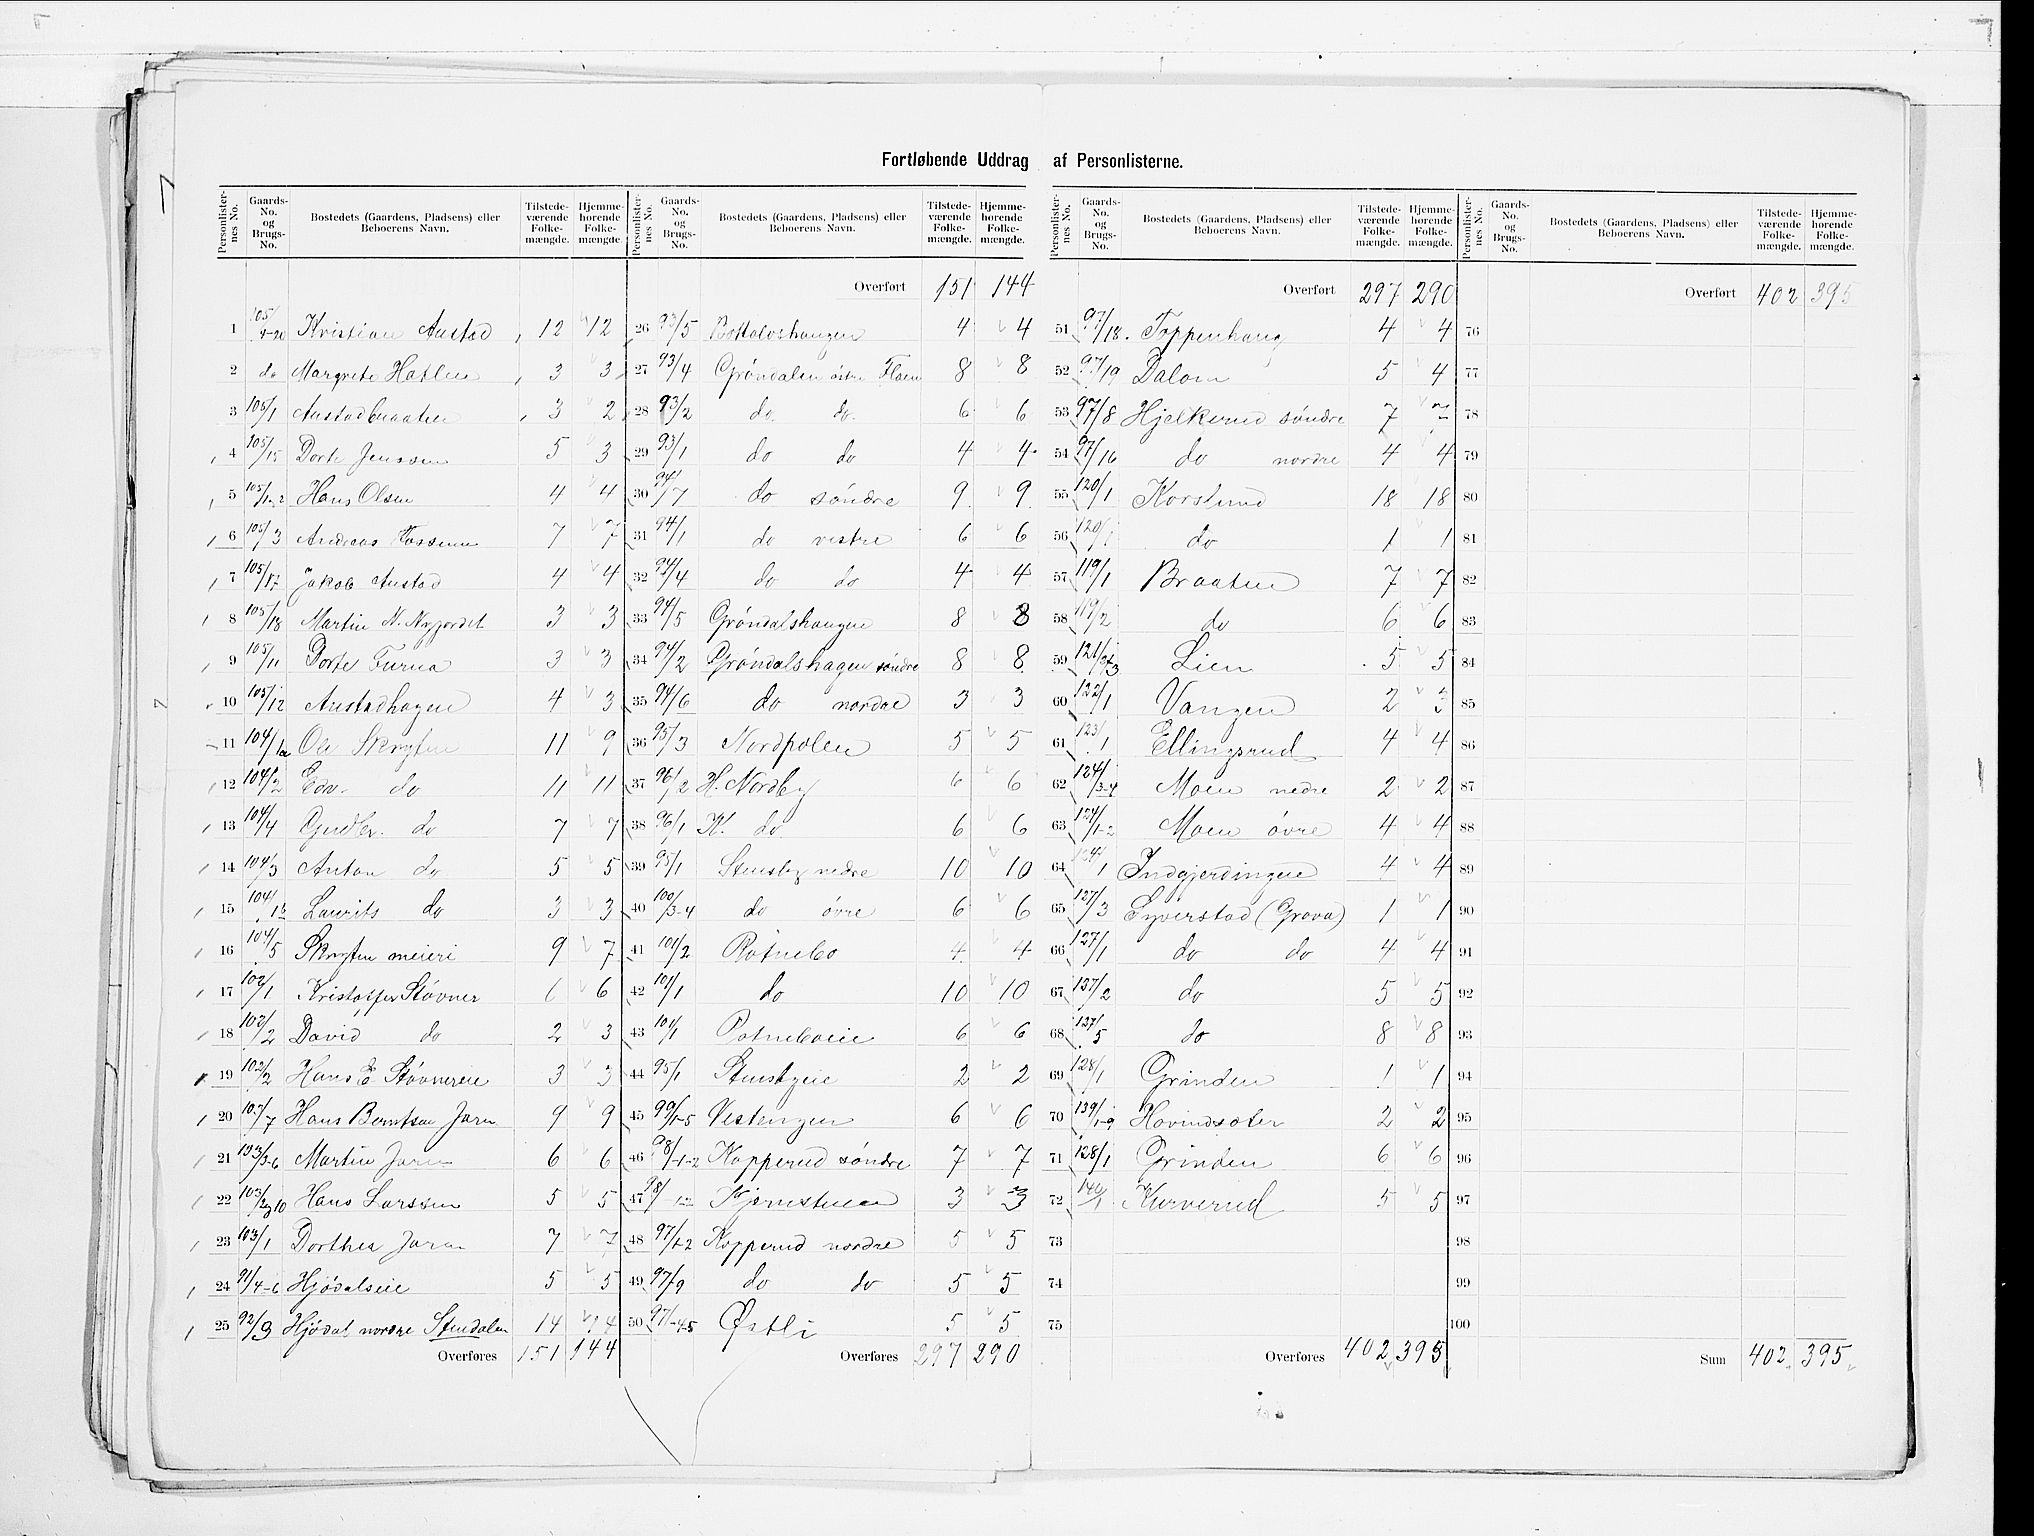 Fortløbende Uddrag af Personlisterne.
Personlister-nes No. Gaards-No. og Brugs-No. Bostedets (Gaardens, Pladsens) eller Beboerens Navn. Tilstede-værende Folke-mængde. Hjemme-hørende Folke-mængde.
1 105/4-20 Kristian Austad 12 12
2 do Margrete Hatlen 3 3
3 105/1 Austadbraaten 3 2
4 105/15 Dorte Jenssen 5 3
5 105/1-2 Hans Olsen 4 4
6 105/3 Andreas Fossum 7 7
7 105/17 Jakob Austad 4 4
8 105/18 Martin N. Nyjordet 3 3
9 105/11 Dorte Furua 3 3
10 105/12 Austadhagen 4 3
11 104/1a Ole Skryten 11 9
12 104/2 Edv. do 11 11
13 104/4 Gudbr. do 7 7
14 104/3 Anton do 5 5
15 104/1b Laurits do 3 3
16 104/5 Skryten meieri 9 7
17 102/1 Kristoffer Støvner 6 6
18 102/2 David do 2 3
19 102/2 Hans E Støvnereie 3 3
20 107/7 Hans Berntsen Jaren 9 9
21 103/3-6 Martin Jaren 6 6
22 103/2 10 Hans Larssen 5 5
23 103/1 Dorthea Jaren 7 7
24 91/4-6 Hjødalseie 5 5
25 92/3 Hjødal nordre Stendalen 14 14
Overføres 151 144
Personlister-nes No. Gaards-No. og Brugs-No. Bostedets (Gaardens, Pladsens) eller Beboerens Navn. Tilstede-værende Folke-mængde. Hjemme-hørende Folke-mængde.
Overført 151 144
26 93/5 4 4
27 93/4 Grøndalen østre Floen 8 8
28 93/2 do do 6 6
29 93/1 do do 4 4
30 94/7 do søndre 9 9
31 94/1 do vestre 6 6
32 94/4 do do 4 4
33 94/5 Grøndalshaugen 8 8
34 94/2 Grøndalshagen søndre 8 8
35 94/6 do nordre 3 3
36 95/3 Nordpolen 5 5
37 96/2 H. Nordby 6 6
38 96/1 K. do 6 6
39 95/1 Stensby nedre 10 10
40 100/3-4 do øvre 6 6
41 101/2 Rotnebo 4 4
42 101/1 do 10 10
43 101/1 Rotneboeie 6 6
44 95/1 Stensbyeie 2 2
45 99/1-5 Vestengen 6 6
46 98/1-2 Kopperud søndre 7 7
47 98/1-2 Hjemstuen 3 3
48 97/1-2 Kopperud nordre 5 5
49 97/9 do do 5 5
50 97/4-5 Østli 5 5
Overføres 297 290
Personlister-nes No. Gaards-No. og Brugs-No. Bostedets (Gaardens, Pladsens) eller Beboerens Navn. Tilstede-værende Folke-mængde. Hjemme-hørende Folke-mængde.
Overført 297 290
51 97/18 Toppenhaug 4 4
52 97/19 Dalom 5 4
53 97/8 Hjelkerud søndre 7 7
54 97/16 do nordre 4 4
55 120/1 Korslund 18 18
56 120/1 do 1 1
57 119/1 Braaten 7 7
58 119/2 do 6 6
59 121/2+3 Lien 5 5
60 122/1 Vangen 2 3
61 123/1 Ellingsrud 4 4
62 124/3-4 Moen nedre 2 2
63 124/1-2 Moen øvre 4 4
64 Indgjerdingen 4 4
65 127/3 Syverstad (Grava) 1 1
66 127/1 do do 4 4
67 137/2 do 5 5
68 137/5 do 8 8
69 128/1 Grinden 1 1
70 139/1-9 Hovindsæter 2 2
71 128/1 Grinden 6 6
72 140/1 Kurverud 5 5
73
74
75
Overføres 402 395
Personlister-nes No. Gaards-No. og Brugs-No. Bostedets (Gaardens, Pladsens) eller Beboerens Navn. Tilstede-værende Folke-mængde. Hjemme-hørende Folke-mængde.
Overført 402 395
76
77
78
79
80
81
82
83
84
85
86
87
88
89
90
91
92
93
94
95
96
97
98
99
100
Sum 402 395